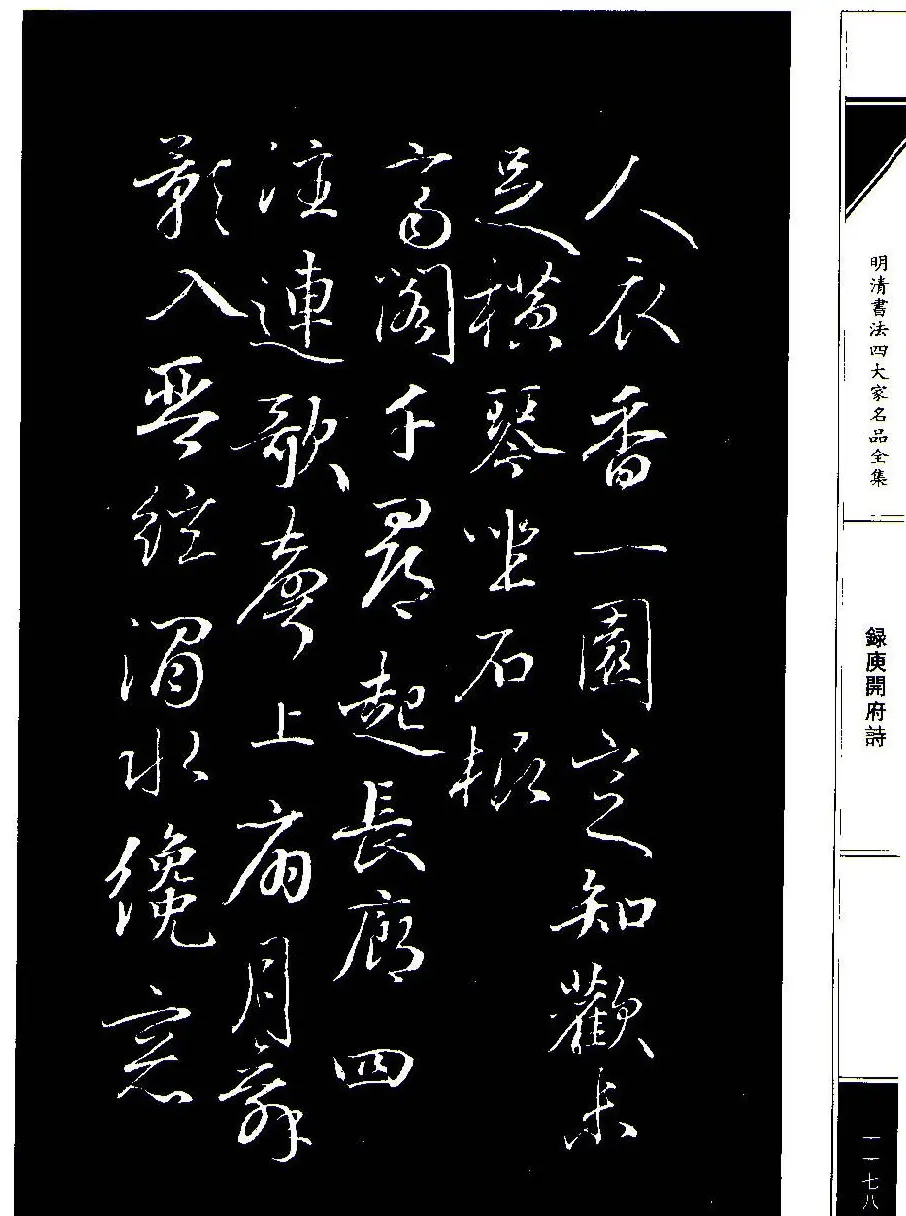 人衣香一園定知歡未
足橫琴坐石根
高閣千尋起長廊四
注連歌聲上扇月舞
影入琴絃澗水纔窓
明清書法四大家名品全集
録庾開府詩
一一七八